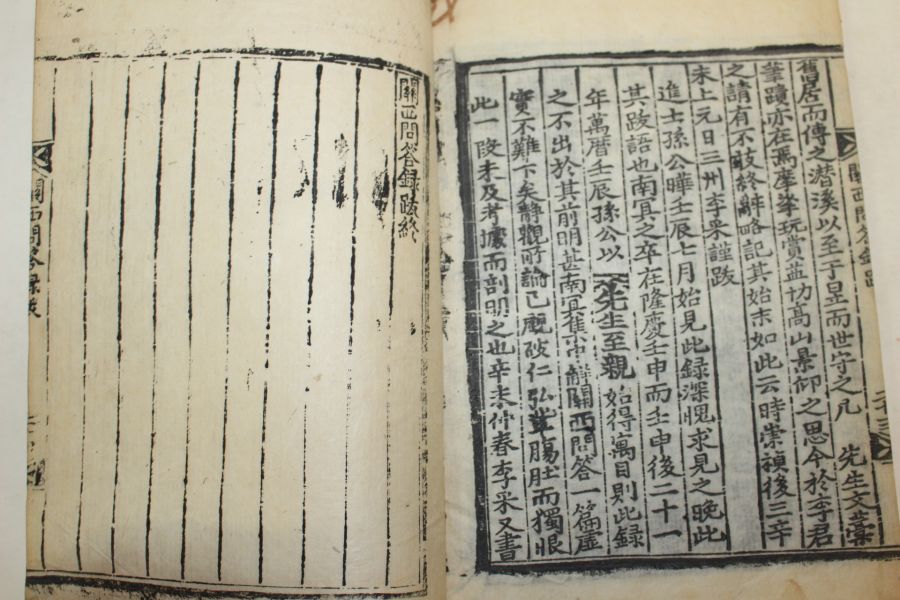 舊居而傳之潛溪以至于昱而世守之凡　先生文藁
筆蹟亦在焉摩挲玩賞益切高山景仰之思今於李君
之請有不敢終辭略記其始末如此云時崇禎後三辛
未上元日三州李采謹跋
進士孫公曄壬辰七月始見此錄深愧求見之晚此
其跋語也南冥之卒在隆慶壬申而壬申後二十一
年萬曆壬辰孫公以　先生至親始得寓目則此錄
之不出於其前明甚南冥集中解關西問答一篇虛
實不難下矣靜觀所論已廠破仁弘輩膓肚而獨恨
此一段未及考據而剖明之也辛未仲春李采又書
關西問答錄跋
關西問答錄跋終
關西問答錄跋